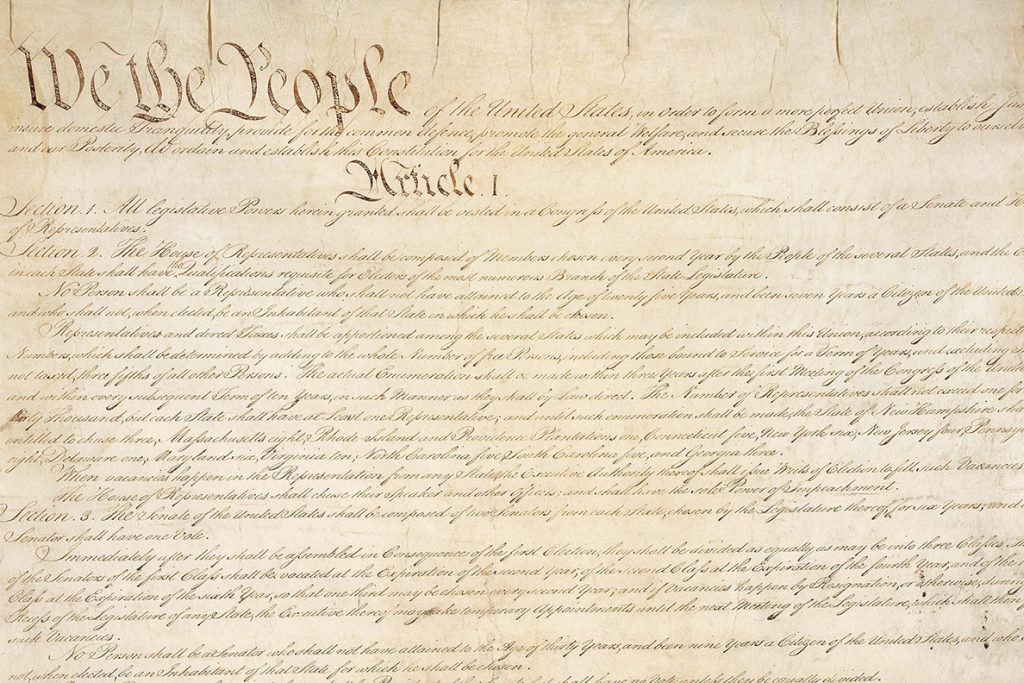 We the People of the United States, in Order to form a more perfect Union, establish Jus
insure domestic Tranquility, provide for the common defence, promote the general Welfare, and secure the Blessings of Liberty to oursel
and our Posterity, do ordain and establish this Constitution for the United States of America.
Article. I.
Section. 1. All legislative Powers herein granted shall be vested in a Congress of the United States, which shall consist of a Senate and Ho
of Representatives.
Section. 2. The House of Representatives shall be composed of Members chosen every second Year by the People of the several States, and the E
in each State shall have the Qualifications requisite for Electors of the most numerous Branch of the State Legislature.
No Person shall be a Representative who shall not have attained to the Age of twenty five Years, and been seven Years a Citizen of the United
and who shall not, when elected, be an Inhabitant of that State in which he shall be chosen.
Representatives and direct Taxes shall be apportioned among the several States which may be included within this Union, according to their respect
Numbers, which shall be determined by adding to the whole Number of free Persons, including those bound to Service for a Term of Years, and excluding
not taxed, three fifths of all other Persons. The actual Enumeration shall be made within three Years after the first Meeting of the Congress of the United
and within every subsequent Term of ten Years, in such Manner as they shall by Law direct. The Number of Representatives shall not exceed one for
thirty Thousand, but each State shall have at Least one Representative; and until such enumeration shall be made, the State of New Hampshire sha
entitled to chuse three, Massachusetts eight, Rhode Island and Providence Plantations one, Connecticut five, New York six, New Jersey four, Pennsy
eight, Delaware one, Maryland six, Virginia ten, North Carolina five, South Carolina five, and Georgia three.
When vacancies happen in the Representation from any State, the Executive Authority thereof shall issue Writs of Election to fill such Vacancies
The House of Representatives shall chuse their Speaker and other Officers; and shall have the sole Power of Impeachment.
Section. 3. The Senate of the United States shall be composed of two Senators from each State, chosen by the Legislature thereof, for six Years; and
Senator shall have one Vote.
Immediately after they shall be assembled in Consequence of the first Election, they shall be divided as equally as may be into three Classes.
of the Senators of the first Class shall be vacated at the Expiration of the second Year, of the second Class at the Expiration of the fourth Year, and of the
Class at the Expiration of the sixth Year, so that one third may be chosen every second Year; and if Vacancies happen by Resignation, or otherwise, during
Recess of the Legislature of any State, the Executive thereof may make temporary Appointments until the next Meeting of the Legislature, which shall then
such Vacancies.
No Person shall be a Senator who shall not have attained to the Age of thirty Years, and been nine Years a Citizen of the United States, and who
not, when elected, be an Inhabitant of that State for which he shall be chosen.
shall have no Vote, unless they be equally divided.